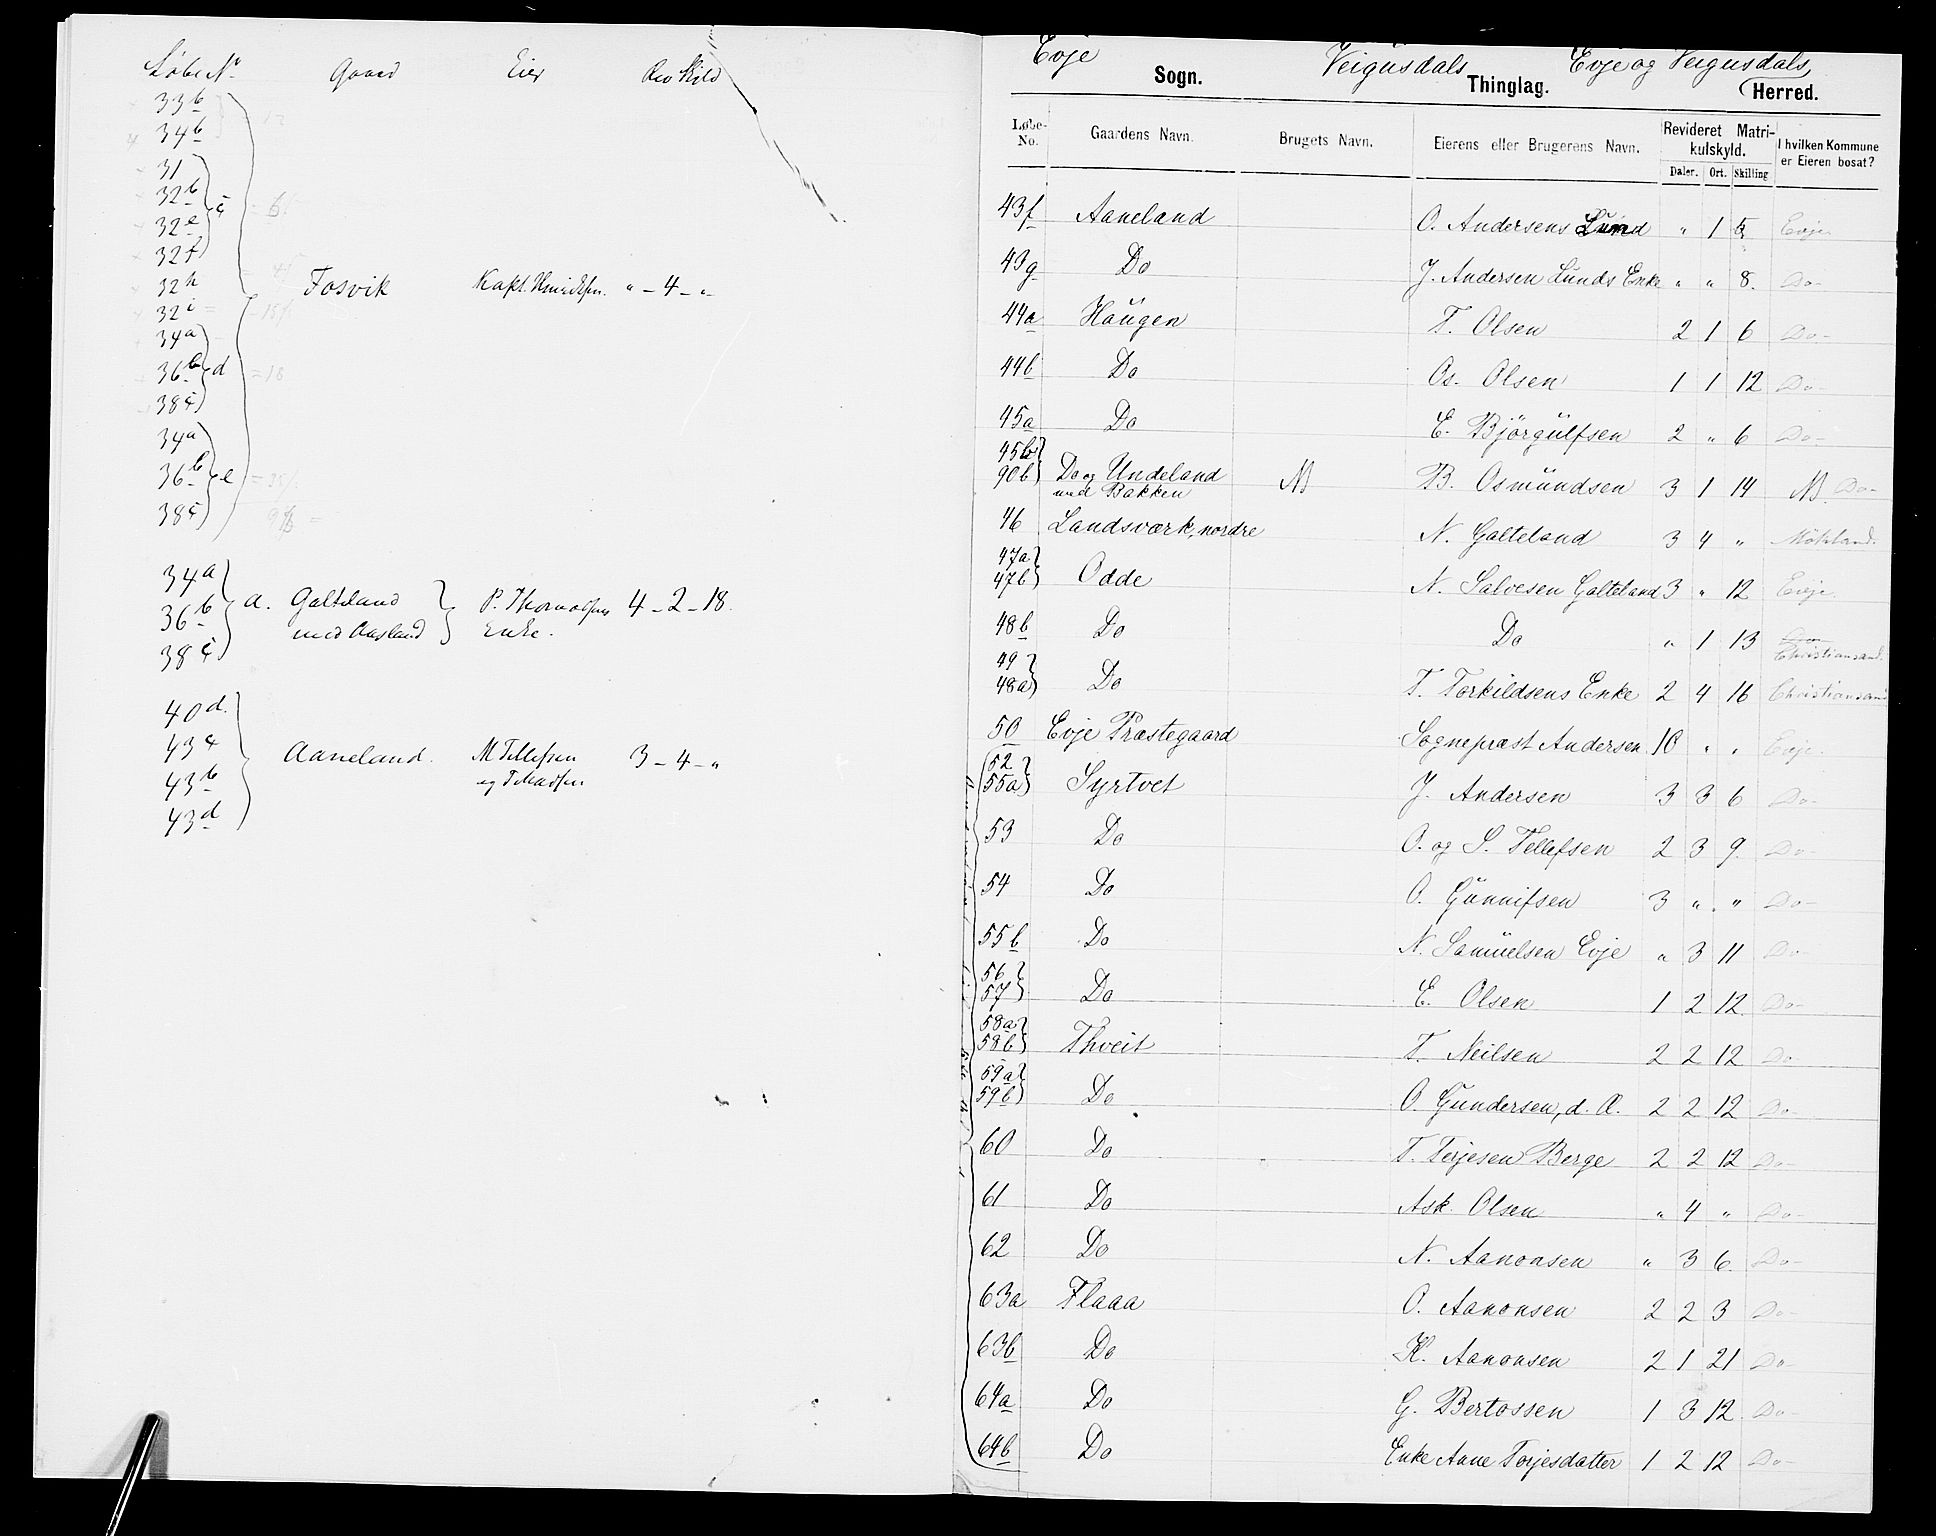 Løbe No Gaard Eier Rev Skild
33b
34b
31
32b
32e c
32f
32h Fosvik " - 4 - "
32i
34a
36b d
38c
34a
36b e
38c
34a
36b a. Galteland P. Thomassens 4 - 2 - 18.
med Aasland Enke.
38c
40d.
43c Aaneland. M Tellefsen 3 - 4 - "
43b
43d
Evje Sogn. Veigusdals Thinglag. Evje og Veigusdals Herred.
Løbe-No. Gaardens Navn. Brugets Navn. Eierens eller Brugerens Navn. Revideret Matrikulskyld. I hvilken Kommune er Eieren bosat?
Daler. Ort. Skilling
43f Aaneland O. Andersens Lund " 1 5 Evje
43g Do J. Andersen Lunds Enke " " 8. Do-
44a Haugen T. Olsen 2 1 6 Do-
44b Do Os. Olsen 1 1 12 Do-
45a Do E. Björgulfsen 2 " 6 Do-
45b
90b Do og Undeland B. Osmundsen 3 1 14 Do-
med Bakken
46 Landsværk, nordre N. Galteland 3 4 "
47a
47b Odde N. Salvesen Galteland 3 " 12 Evje.
48b Do Do " 1 13 Christiansand.
49
48a Do T. Torkildsens Enke 2 4 16 Christiansand
50 Evje Præstegaard Sognepræst Andersen 10 " " Evje.
52
55a Syrtvet J. Andersen 3 3 6 Do-
53 Do O. og S. Tellefsen 2 3 9. Do-
54 Do O. Gunnifsen 3 " " Do-
55b Do N. Samuelsen Evje " 3 11 Do-
56
57 Do E. Olsen 1 2 12 Do-
58a
58b Thveit T. Neilsen 2 2 12 Do-
59a
59b Do O. Gundersen, d. Æ. 2 2 12 Do-
60 Do T. Terjesen Berge 2 2 12 Do-
61 Do Ask. Olsen " 4 " Do-
62 Do N. Aanonsen " 3 6. Do-
63a Flaaa O. Aanonsen 2 2 3 Do-
63b Do K. Aanonsen 2 1 21 Do-
64a Do G. Bertossen 1 3 12. Do-
64b Do Enke Aane Torjesdatter 1 2 12 Do-